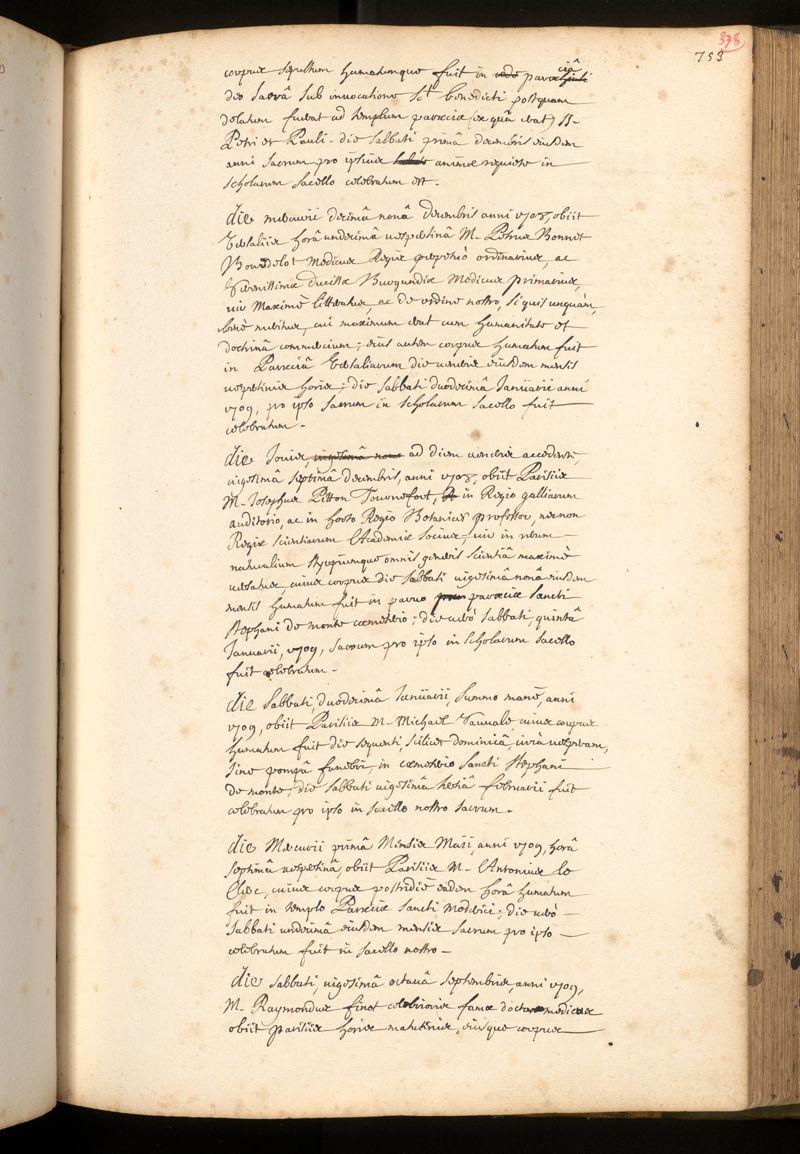 378
753
corpus sepultum humatumque fuit in paroeciâ
de Saxâ sub invocatione Sti benedicti postquam
delatum fuerat ad templum paroeciae (ex quâ erat) SS.
Petri et Pauli. die sabbati primâ decembris eiusdem
anni sacrum pro ipsius animae requiete in
scholarum sacello celebratum est.
die mercurii decimâ nonâ decembris anni 1708, obiit
Versaliis horâ undecimâ vespertinâ M. Petrus Bonnet
Bourdelot Medicus Regis perpetuò ordinarius, ac
Serenissimae Ducissae Burgundiae Medicus primarius,
vir maximè litteratus, ac de ordine nostro, si quis unquàm,
benè meritus, cui maximum erat cum humanitate et
doctrinâ commercium; eius autem corpus humatum fuit
in Paroeciâ Versaliarum die veneris eiusdem mensis
vespertinis horis; die sabbati duodecimâ Januarii anni
1709, pro ipso sacrum in scholarum sacello fuit
celebratum.
die Jovis, ad diem veneris accedente,
vigesimâ septimâ decembris, anni 1708, obiit Parisiis
M. Josephus Pitton Tournefort, in Regio galliarum
auditorio, ac in horto Regio Botanices professor, necnon
Regiae scientiarum Academiae socius, vir in rerum
naturalium stirpiumque omnis generis scientiâ maximè
versatus, cuius corpus die sabbati vigesimâ nonâ eiusdem
mensis humatum fuit in parvo paroeciae sancti
stephani de monte coemeterio; die verò sabbati, quintâ
Januarii, 1709, sacrum pro ipso in scholarum sacello
fuit celebratum.
die sabbati, duodecimâ Januarii, summo manè, anni
1709, obiit Parisiis M. Michael cuius corpus
humatum fuit die sequenti, scilicet dominicâ, circà vesperam,
sine pompâ funebri, in coemeterio sancti stephani
de monte; die sabbati vigesimâ tertiâ februarii fuit
celebratum pro ipso in sacello nostro sacrum.
die Mercurii primâ Mensis Maii, anni 1709, horâ
septimâ vespertinâ, obiit Parisiis M. Antonius le
Clerc, cuius corpus postridiè eâdem horâ humatum
fuit in templo Paroeciae sancti Mederici; die verò
sabbati undecimâ eiusdem mensis sacrum pro ipso
celebratum fuit in sacello nostro.
die sabbati, vigesimâ octavâ septembris, anni 1709,
M. Raymondus finot celebrioris famae doctor medicus
obiit parisiis horis matutinis, eiusque corpus